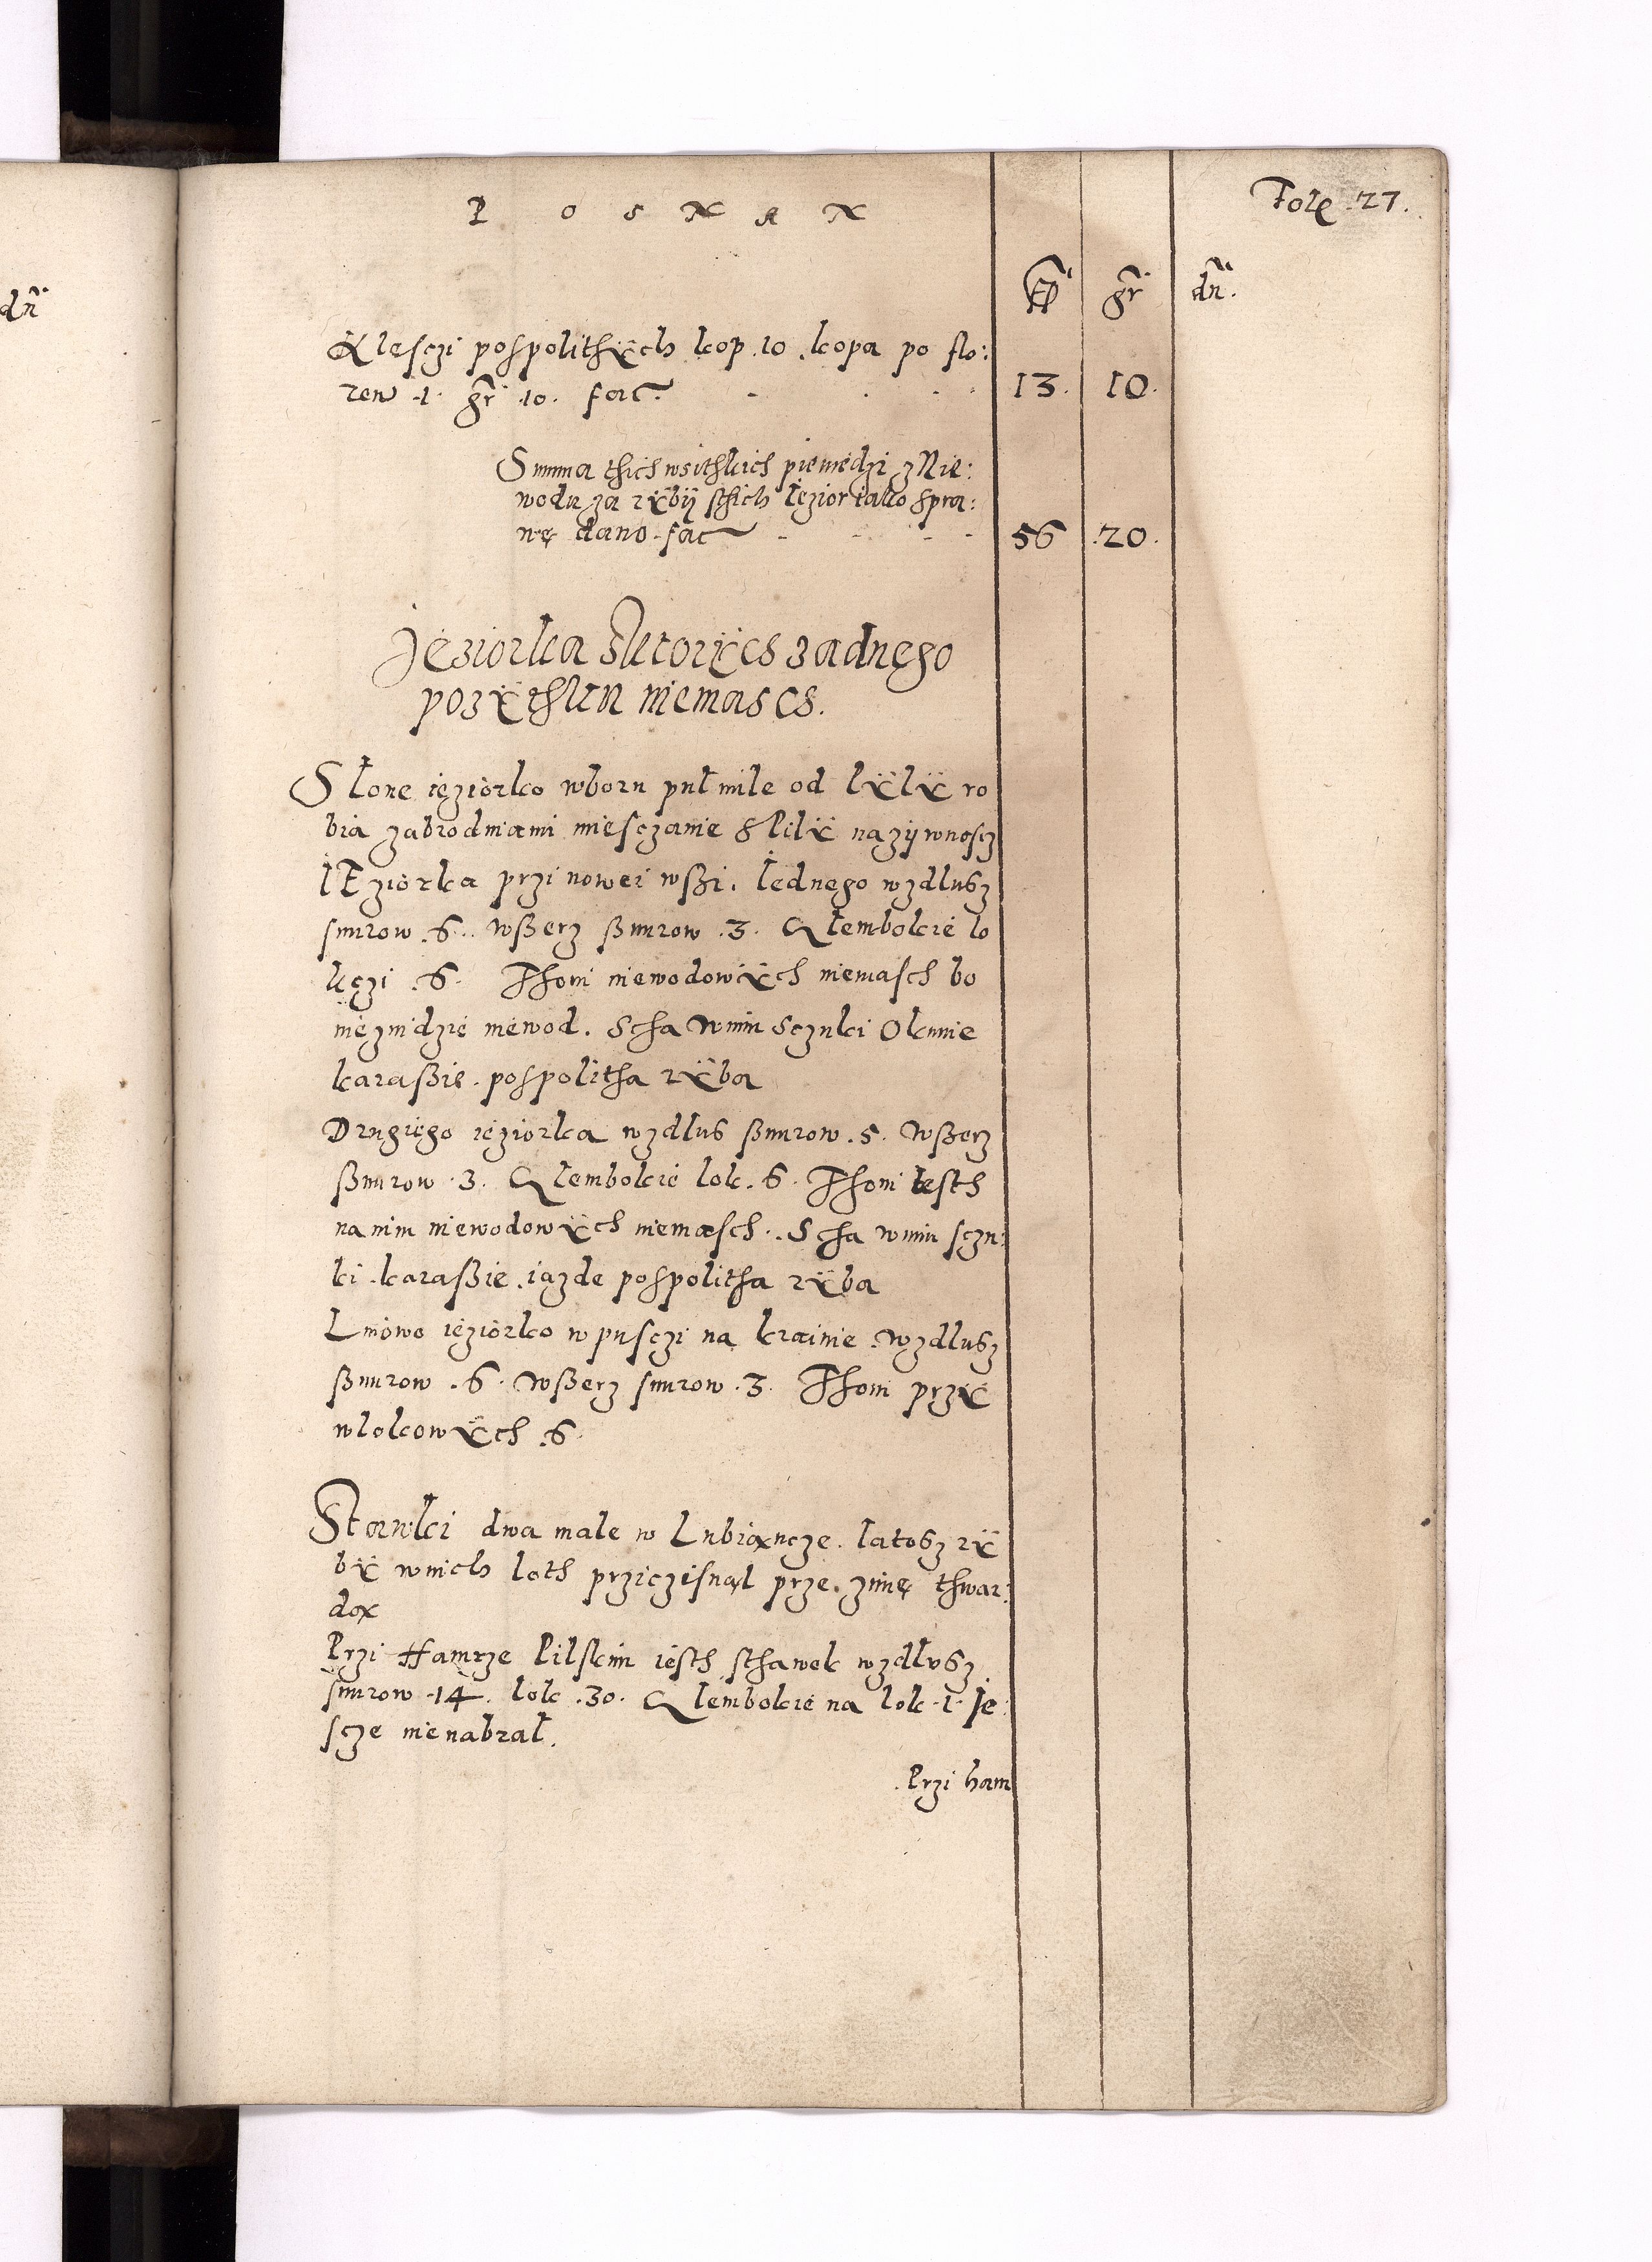 P O S N A N
Fole 27.
fl gr dn.
dn
Klesczi pospolithÿch kop. 10. kopa po flo:
ren .1. gr .10. fac. 13. 10.
Summa thich wsithkich pieniedzi z Nie:
wodu za rÿbÿ sthich Iezior iako spra:
wę dano. fac 56 .20.
Jeziorka Ktorÿcs zadnego
pozÿthku niemascs.
Słone ieziorko wboru puł mile od lÿlÿ ro
bia zabrodniami miesczanie s Pilÿ na zÿwnoscz
IEziorka przi nowei wßi. Iednego wzdlusz
snurow .6. wßerz ßnurow .3. Głembokie lo
kczi .6. Thoni niewodowÿch niemasch bo
nieznidzie niewod. Scha wnim sczuki Okunie
karaßie. pospolitha rÿba
Drugiego ieziorka wzdlus ßnurow .5. wßerz
ßnurow .3. Głembokie lok. 6. Thoni Iesth
na nim niewodowÿch niemasch. Scha wnim sczu:
ki .karaßie .iazde pospolitha rÿba
Lnowo ieziorko w pusczi na krainie .wzdlusz
ßnurow .6. wßerz snurow .3. Thoni przÿ
wlokowÿch .6.
Stawki dwa małe w Lubiancze. latosz rÿ
bÿ wnich loth prziczisnął prze. zimę thwar:
dą
Przi Hamrze Pilskim iesth sthawek wzdłusz
snurow .14. lok .30. Głembokie na lok .1. Je:
scze nienabrał.
.Przi ham